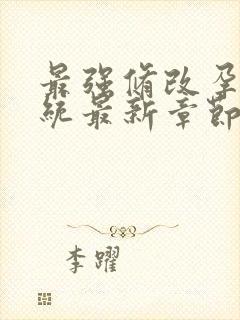 最强脩改孕
统最新章節
李躍